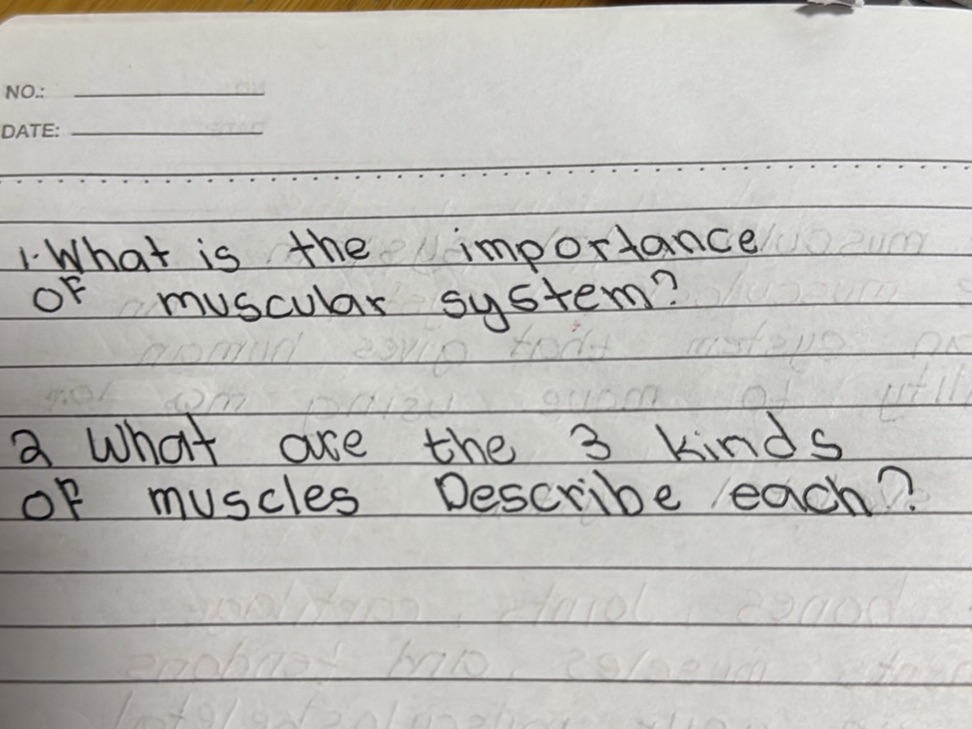 NO.:
DATE:
1. What is the importance
OF muscular system?
2 What are the 3 kinds
OF muscles Describe each?